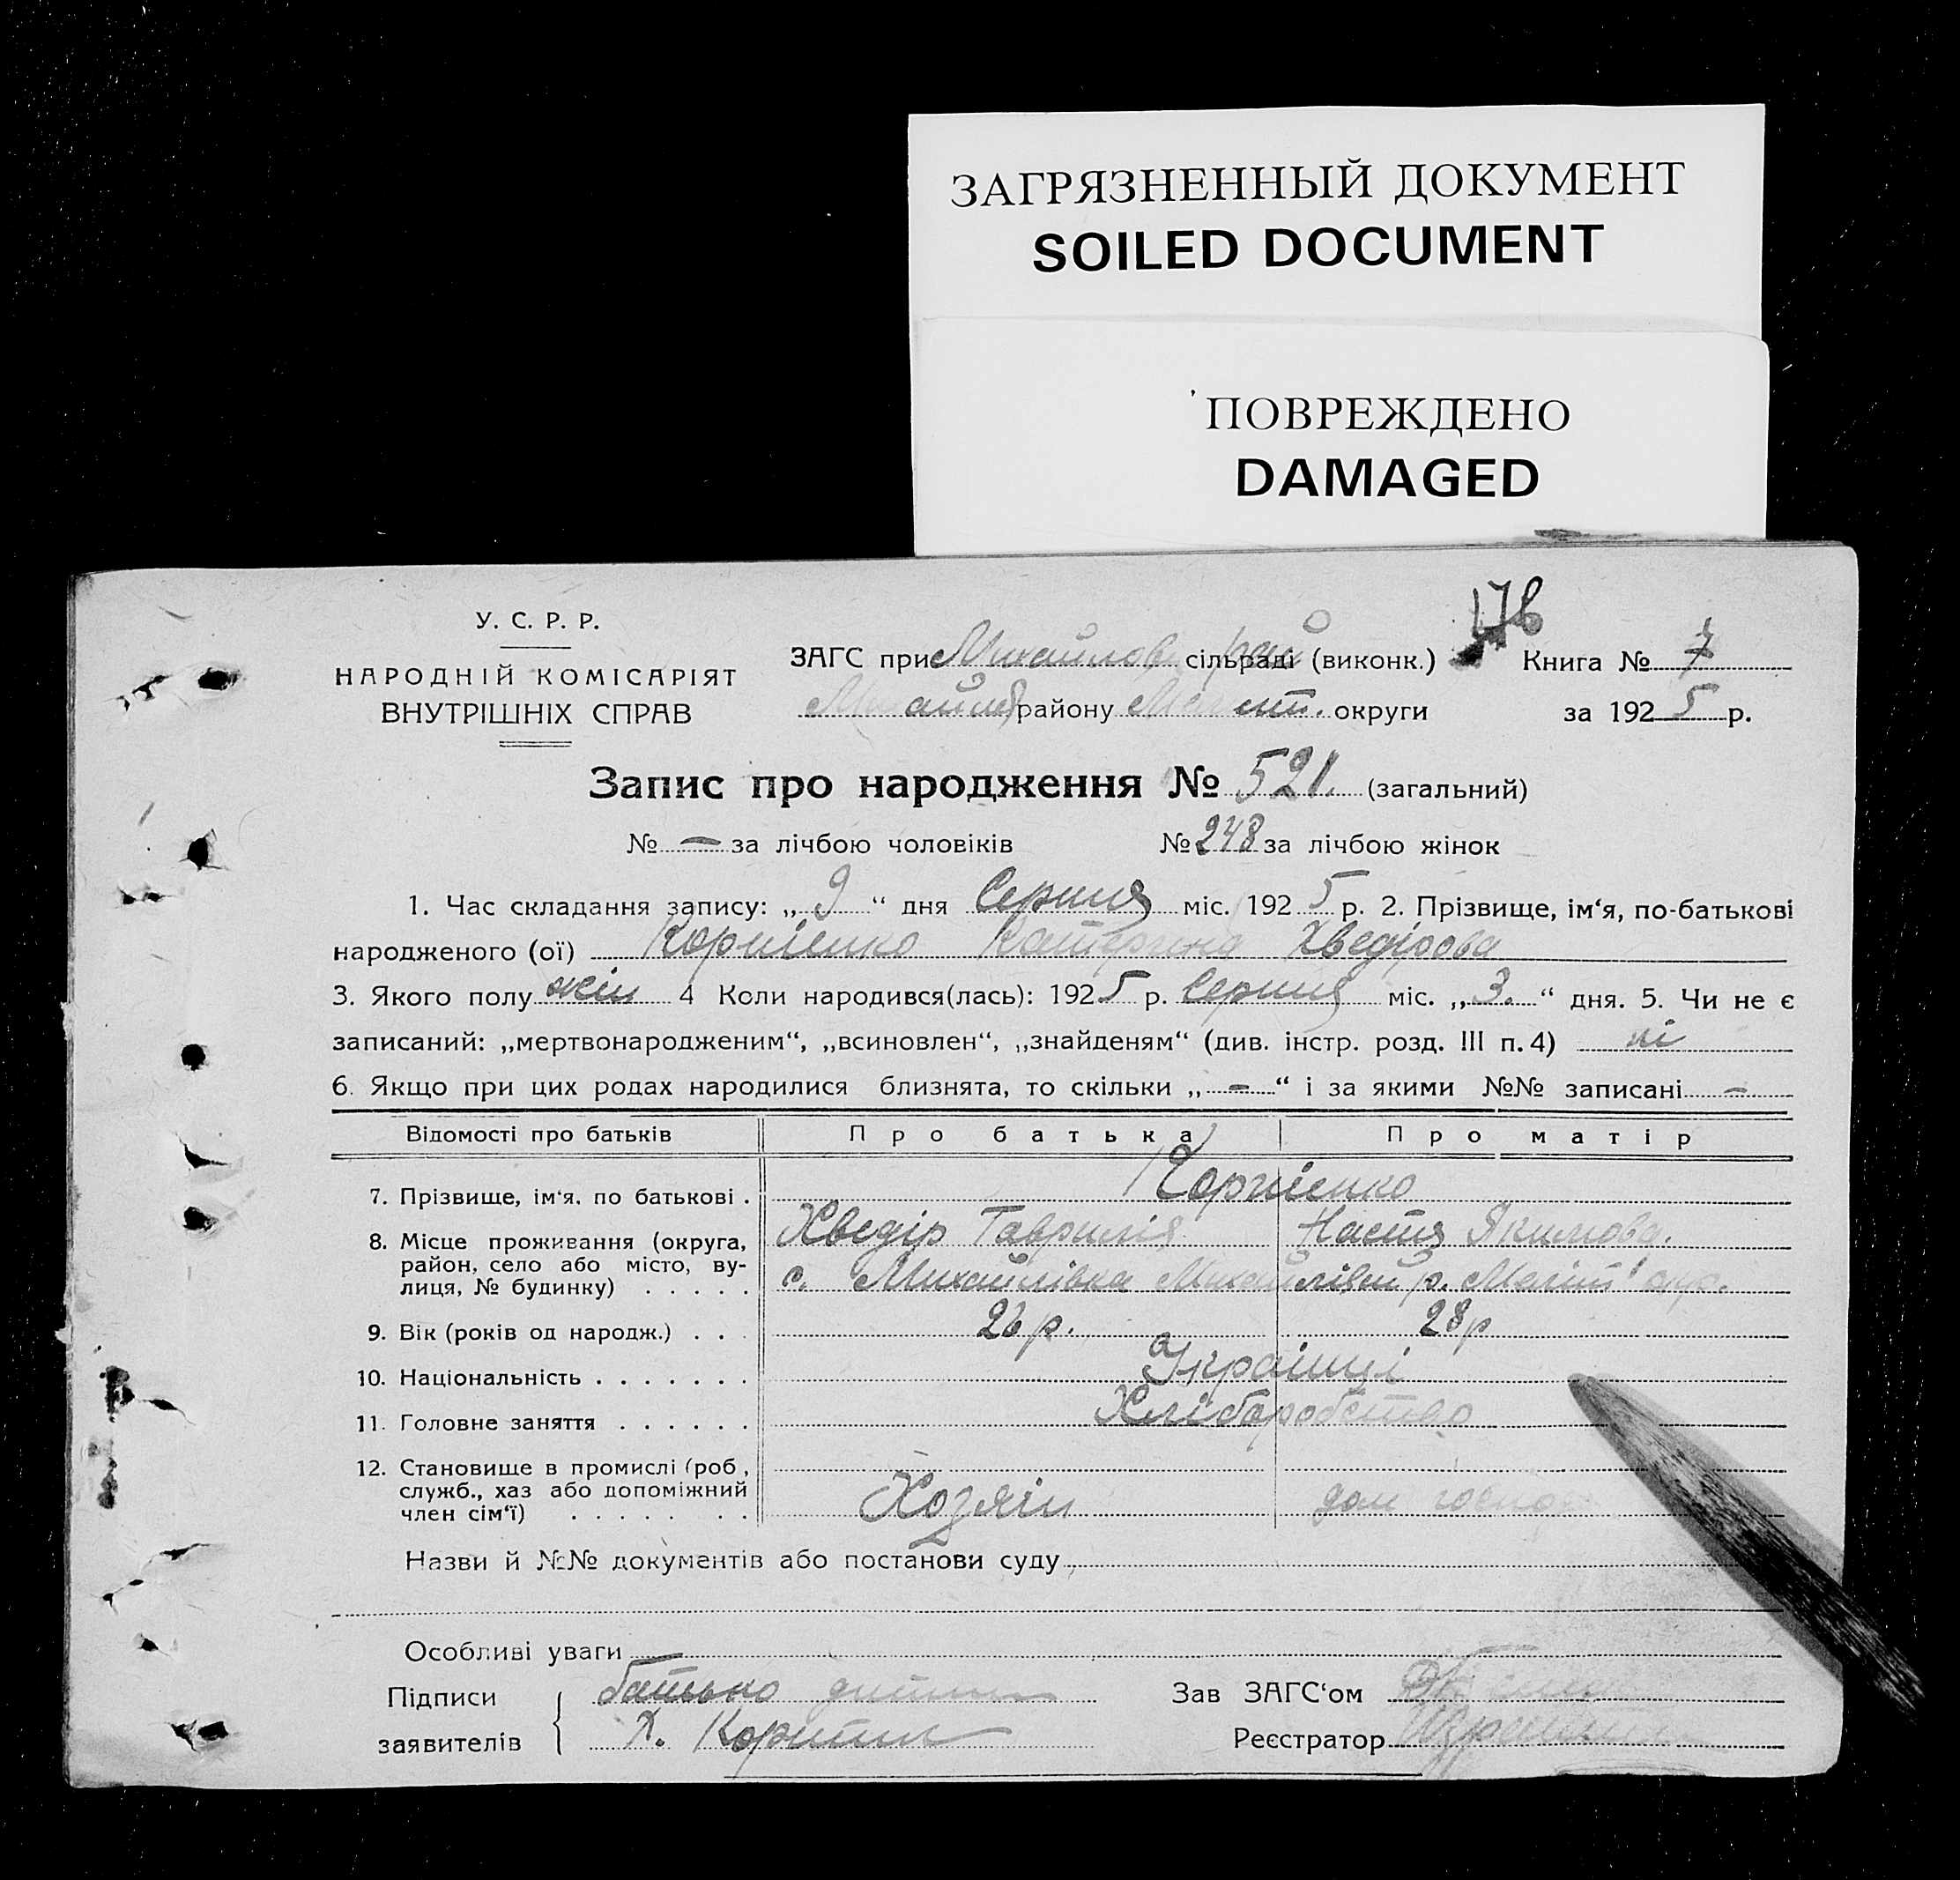 ЗАГРЯЗНЕННЫЙ ДОКУМЕНТ
SOILED DOCUMENT
ПОВРЕЖДЕНО
DAMAGED
У. С. Р. Р.
НАРОДНІЙ КОМІСАРІЯТ
ВНУТРІШНІХ СПРАВ
ЗАГС при Михайлов. сільраді (виконк.) Книга № 7
району округи за 1925 р.
Запис про народження № 521. (загальний)
№ — за лічбою чоловіків № 248 за лічбою жінок
1. Час складання запису: „ 9 “ дня Серпня міс. 1925 р. 2. Прізвище, ім‘я, по-батькові
народженого (ої) Корнієнко Катерина Хведірова
3. Якого полу жін 4 Коли народився(лась): 1925 р. Серпня міс. „ 3. “ дня. 5. Чи не є
записаний: „мертвонародженим“, „всиновлен“, „знайденям“ (див. інстр. розд. III п. 4) ні
6. Якщо при цих родах народилися близнята, то скільки „ – “ і за якими №№ записані –
Відомості про батьків Про батька Про матір
7. Прізвище, ім‘я, по батькові . Корнієнко
Хведір Гаврилів Настя Якимова.
8. Місце проживання (округа, район, село або місто, вулиця, № будинку) . . . . . с. Михайлівка р. Меліт. окр.
9. Вік (років од народж.) . . . 26 р. 28 р
10. Національність . . . . . . . Українці
11. Головне заняття . . . . . . Хліборобство
12. Становище в промислі (роб,
служб., хаз або допоміжний
член сім‘ї) . . . . . . . Хозяін дом госпо
Назви й №№ документів або постанови суду
Особливі уваги
Підписи батько дитини Зав ЗАГС‘ом
заявителів Х. Реєстратор